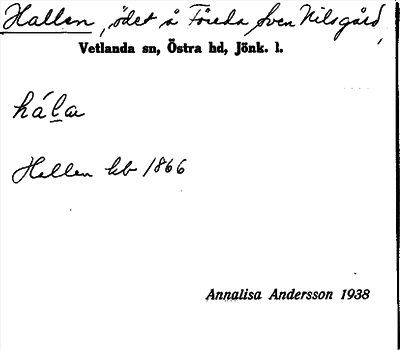 Hallen, ödet å Föreda Sven Nilsgård,
Vetlanda sn, Östra hd, Jönk. l.
hála
Hallen kb 1866
Annalisa Andersson 1938